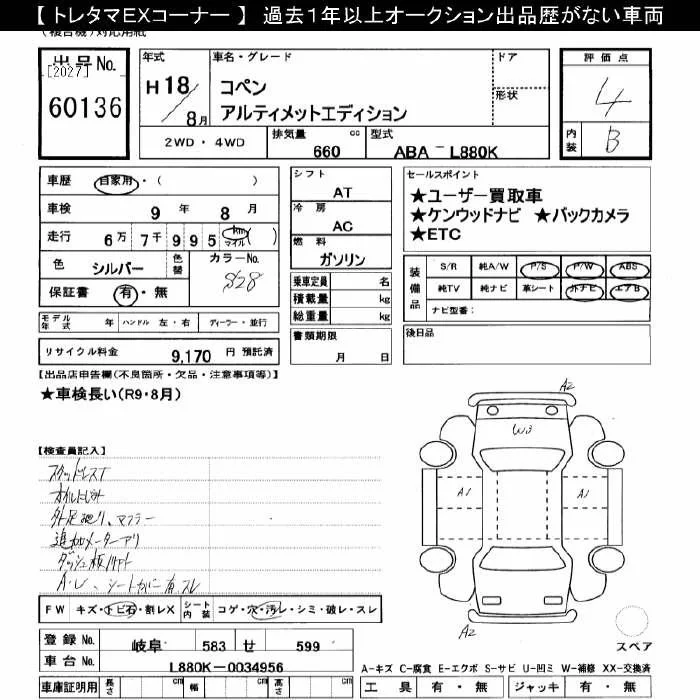 【 トレタマEXコーナー 】 過去１年以上オークション出品歴がない車両
(複合機)対応用紙
出品 No.
[2027]
60136
年式
H 18 / 8 月
車名・グレード
コペン
アルティメットエディション
ドア
形状
評価点
4
内装 B
2WD ・ 4WD
排気量 cc
660
型式
ABA - L880K
車歴 自家用・( )
車検 9 年 8 月
走行 6万 7千 9 9 5 km マイル ( )
色 シルバー 色替 カラーNo. S28
保証書 有・無
モデル年式 年 ハンドル 左・右 ディーラー・並行
リサイクル料金 9,170 円 預託済
シフト
AT
冷房
AC
燃料
ガソリン
乗車定員 名
積載量 kg
総重量 kg
書類期限
月 日
セールスポイント
★ユーザー買取車
★ケンウッドナビ ★バックカメラ
★ETC
装備品
S/R 純A/W P/S P/W ABS
純TV 純ナビ 革シート 外ナビ エアB
ナビ型番：
後日品
【出品店申告欄(不良箇所・欠品・注意事項等)】
★車検長い(R9・8月)
【検査員記入】
スタッドレスT
オイルにじみ
外足廻り、マフラー
追加メーターアリ
A・L、シート
FW キズ・トビ石・割レX シート内装 コゲ・穴・汚レ・シミ・破レ・スレ
登録 No. 岐阜 583 せ 599
車台 No. L880K-0034956
車庫証明用 長さ cm 幅 cm 高さ cm
A2
W3
A1
A1
A2
スペア
A-キズ C-腐食 E-エクボ S-サビ U-凹ミ W-補修 XX-交換済
工具 有・無 ジャッキ 有・無